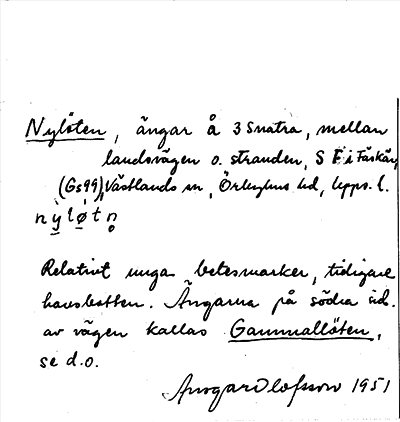 Nylöten, ängar å 3 Snatra, mellan
landsvägen o. stranden, S F i Fäskär,
(Gs 99), Västlands sn, Örbyhus hd, Upps. l.
n y l ø t n̥
Relativt unga betesmarker, tidigare
havsbotten. Ängarna på södra sid.
av vägen kallas Gammallöten,
se d.o.
Ansgar Olofsson 1951